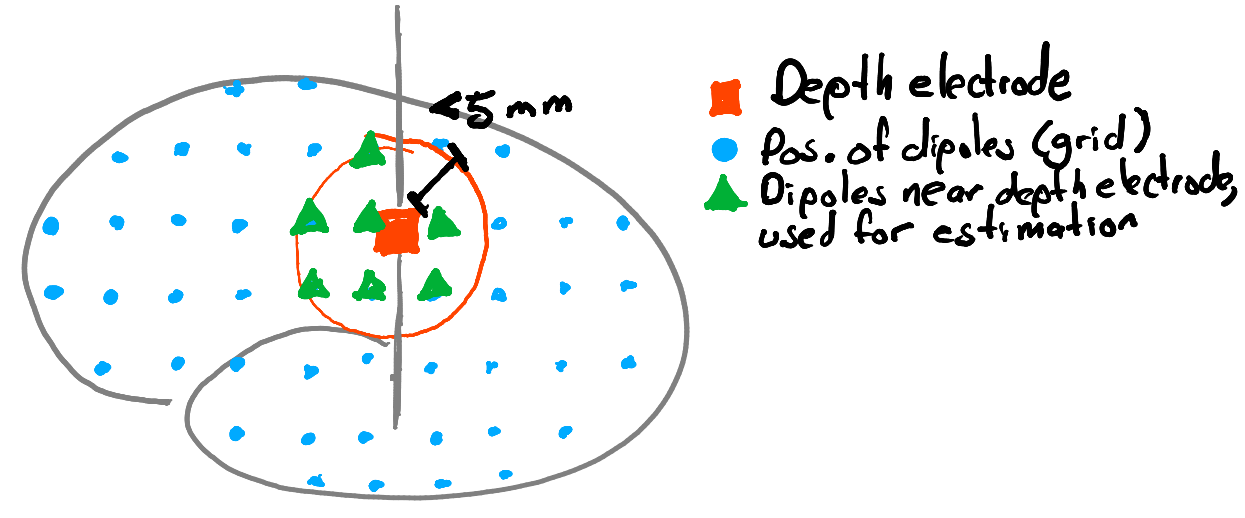 <5 mm
Depth electrode
Pos. of dipoles (grid)
Dipoles near depth electrode,
used for estimation